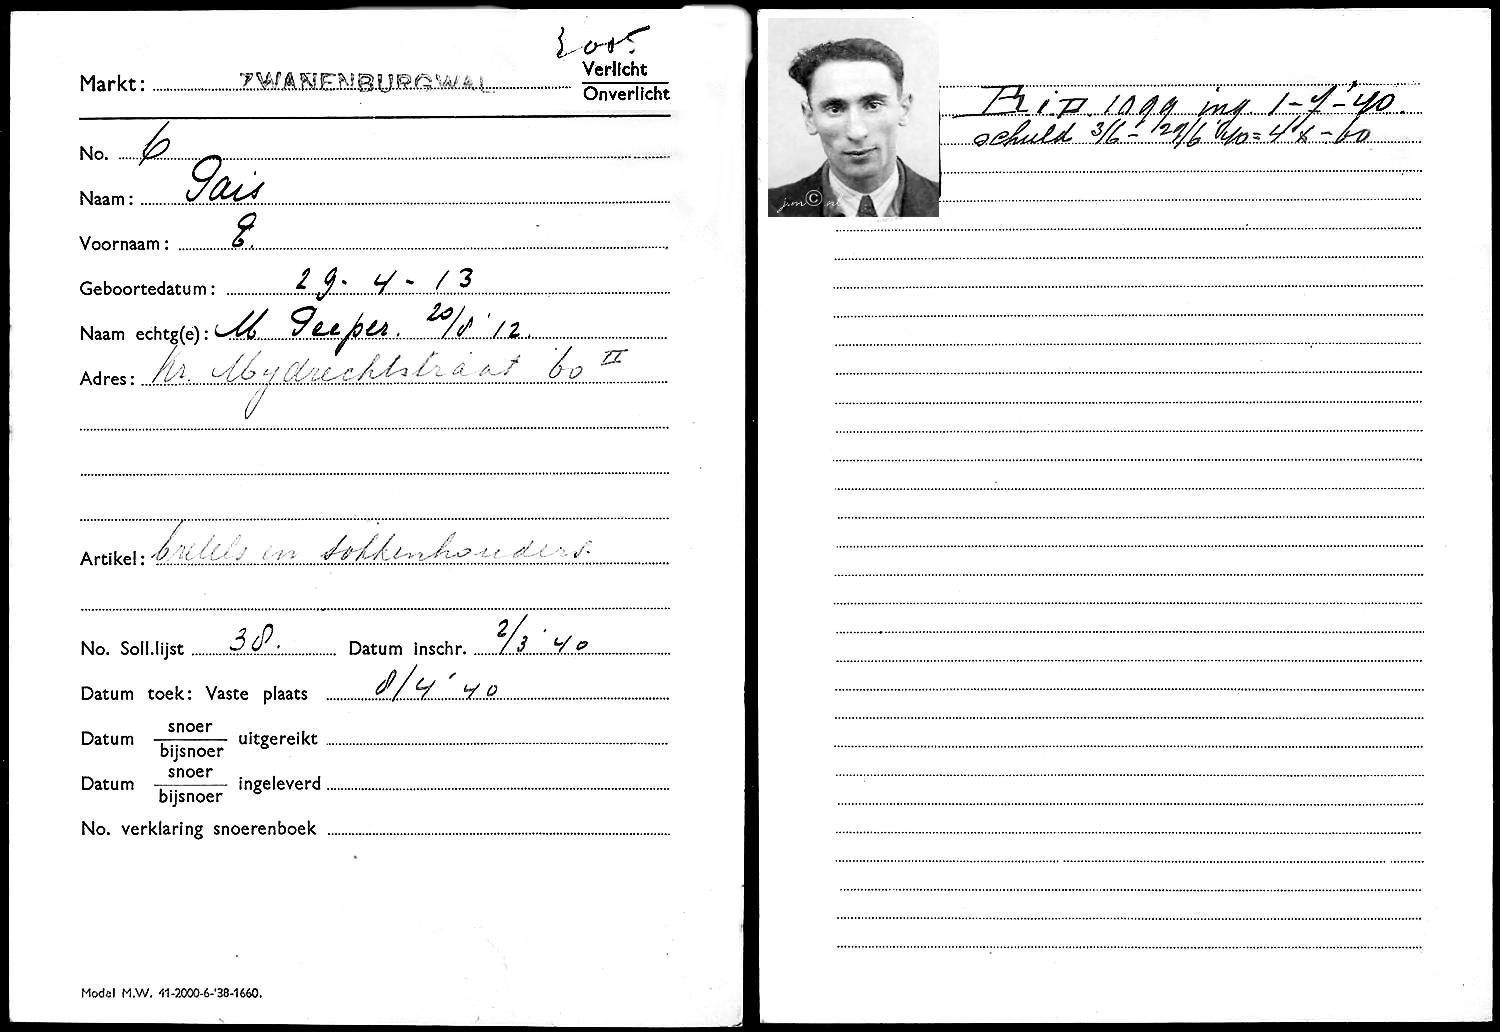 Markt: ZWANENBURGWAL
Verlicht
Onverlicht
No. 6
Naam: Pais
Voornaam: E.
Geboortedatum: 29-4-13
Naam echtg(e): M Peeper. 20/8 '12.
Adres: Kr. Mydrechtstraat 60 II
Artikel: bretels en sokkenhouders.
No. Soll.lijst 38. Datum inschr. 2/3 '40
Datum toek: Vaste plaats 8/4 '40
Datum snoer/bijsnoer uitgereikt
Datum snoer/bijsnoer ingeleverd
No. verklaring snoerenboek
Model M.W. 41-2000-6-'38-1660.
ing. 1-7-'40.
schuld 3/6 - 29/6 '40 = 4 x - 60